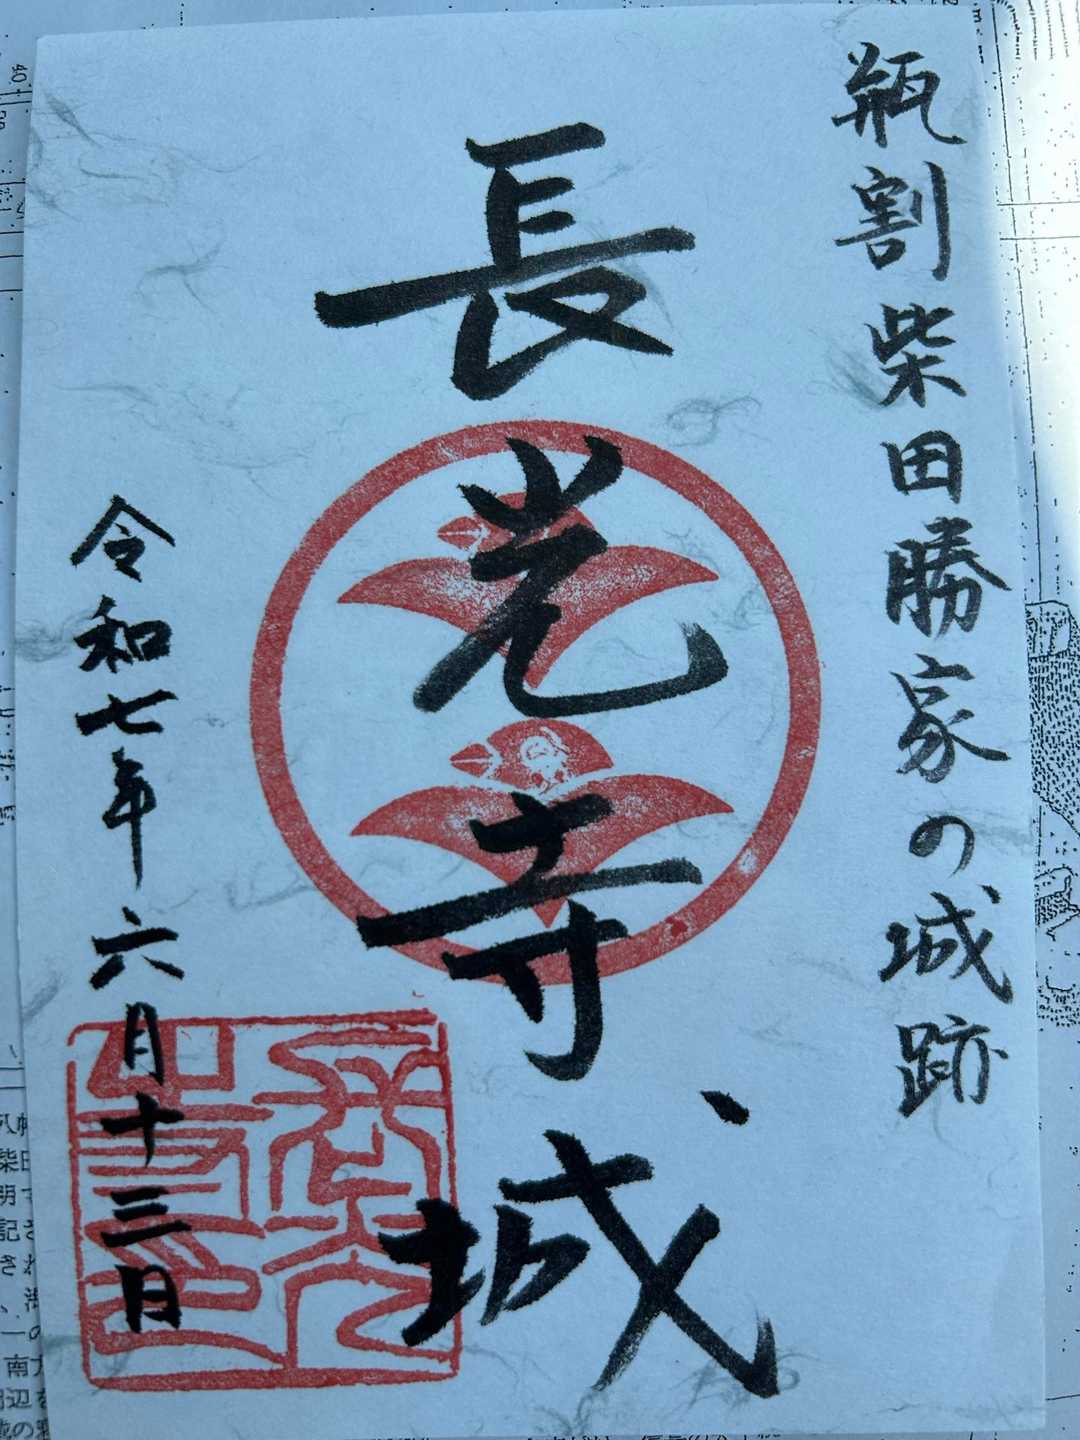 瓶割柴田勝家の城跡
長光寺城
令和七年六月十三日